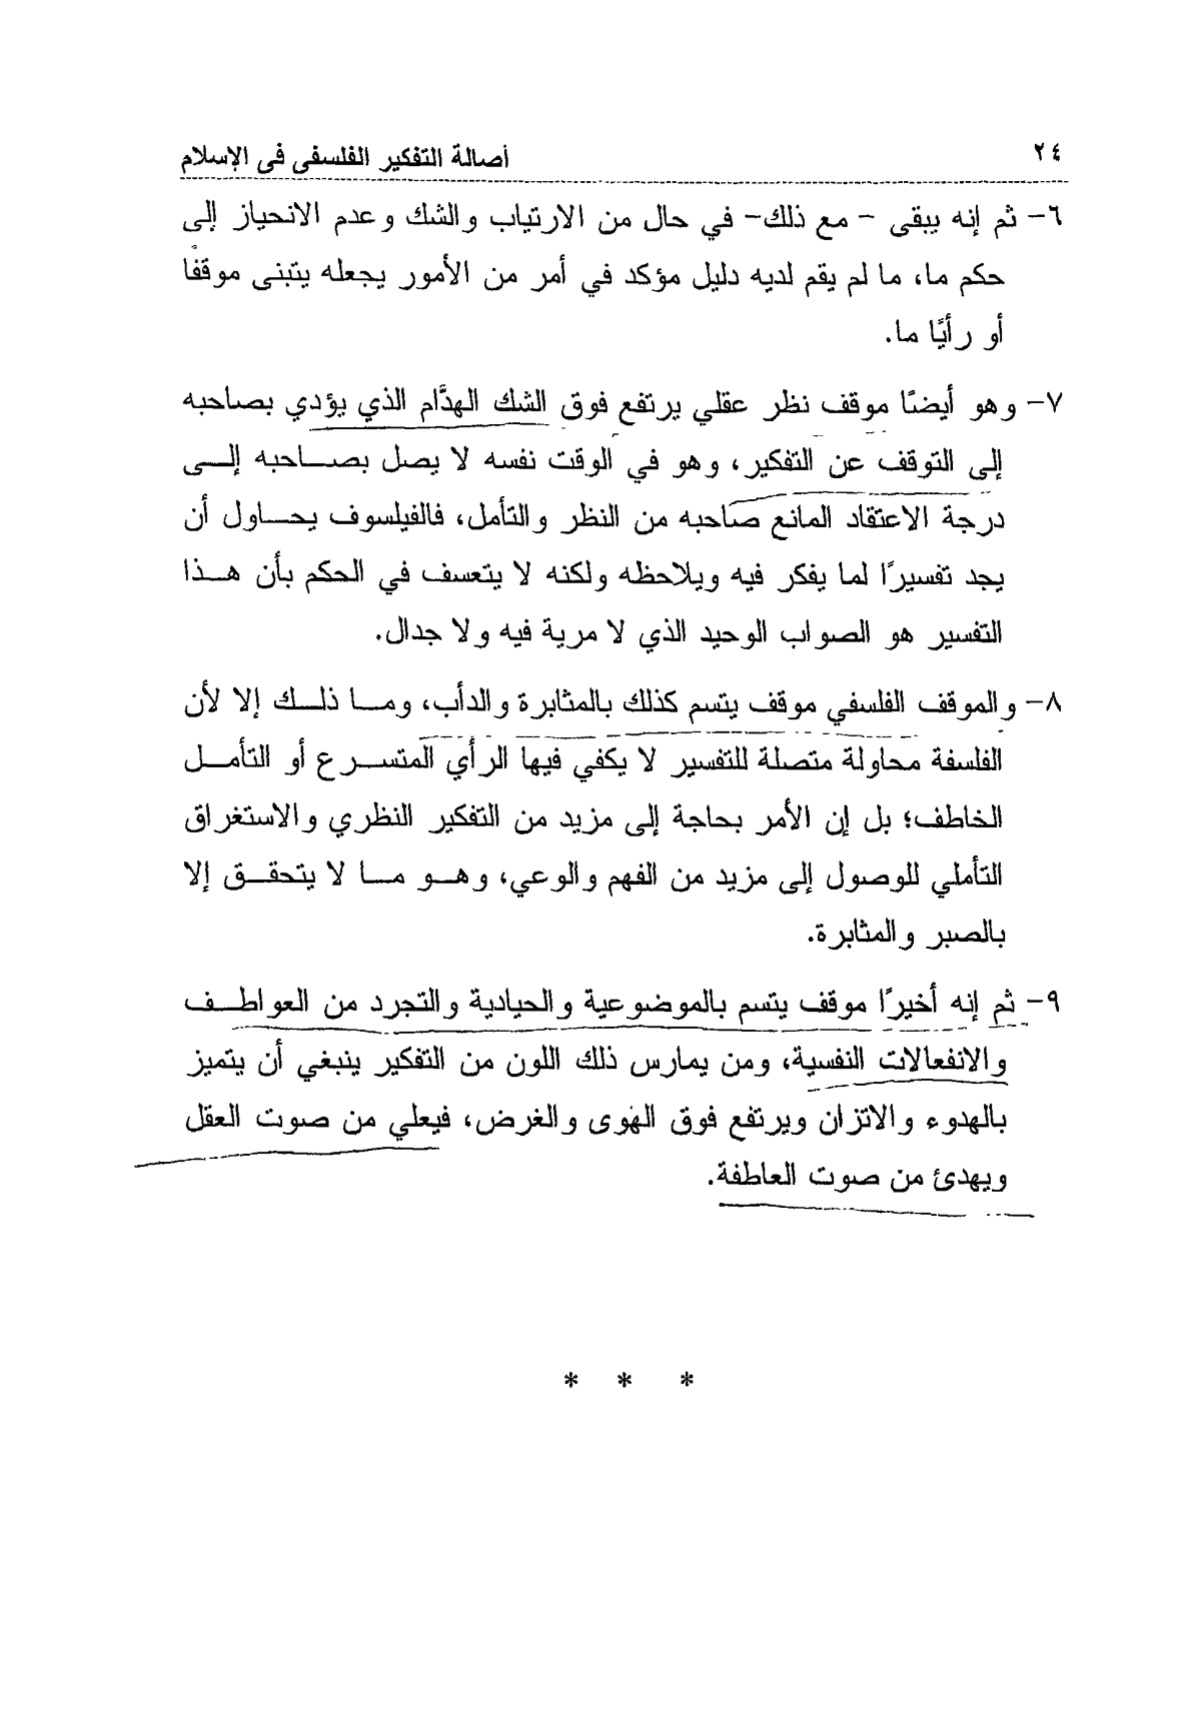 ٢٤
أصالة التفكير الفلسفى فى الإسلام
٦- ثم إنه يبقى - مع ذلك- في حال من الارتياب والشك وعدم الانحياز إلى
حكم ما، ما لم يقم لديه دليل مؤكد في أمر من الأمور يجعله يتبنى موقفًا
أو رأيًا ما.
٧- وهو أيضًا موقف نظر عقلي يرتفع فوق الشك الهدَّام الذي يؤدي بصاحبه
إلى التوقف عن التفكير، وهو في الوقت نفسه لا يصل بصاحبه إلى
درجة الاعتقاد المانع صاحبه من النظر والتأمل، فالفيلسوف يحاول أن
يجد تفسيرًا لما يفكر فيه ويلاحظه ولكنه لا يتعسف في الحكم بأن هذا
التفسير هو الصواب الوحيد الذي لا مرية فيه ولا جدال.
٨- والموقف الفلسفي موقف يتسم كذلك بالمثابرة والدأب، وما ذلك إلا لأن
الفلسفة محاولة متصلة للتفسير لا يكفي فيها الرأي المتسرع أو التأمل
الخاطف؛ بل إن الأمر بحاجة إلى مزيد من التفكير النظري والاستغراق
التأملي للوصول إلى مزيد من الفهم والوعي، وهو ما لا يتحقق إلا
بالصبر والمثابرة.
٩- ثم إنه أخيرًا موقف يتسم بالموضوعية والحيادية والتجرد من العواطف
والانفعالات النفسية، ومن يمارس ذلك اللون من التفكير ينبغي أن يتميز
بالهدوء والاتزان ويرتفع فوق الهوى والغرض، فيعلي من صوت العقل
ويهدئ من صوت العاطفة.
* * *